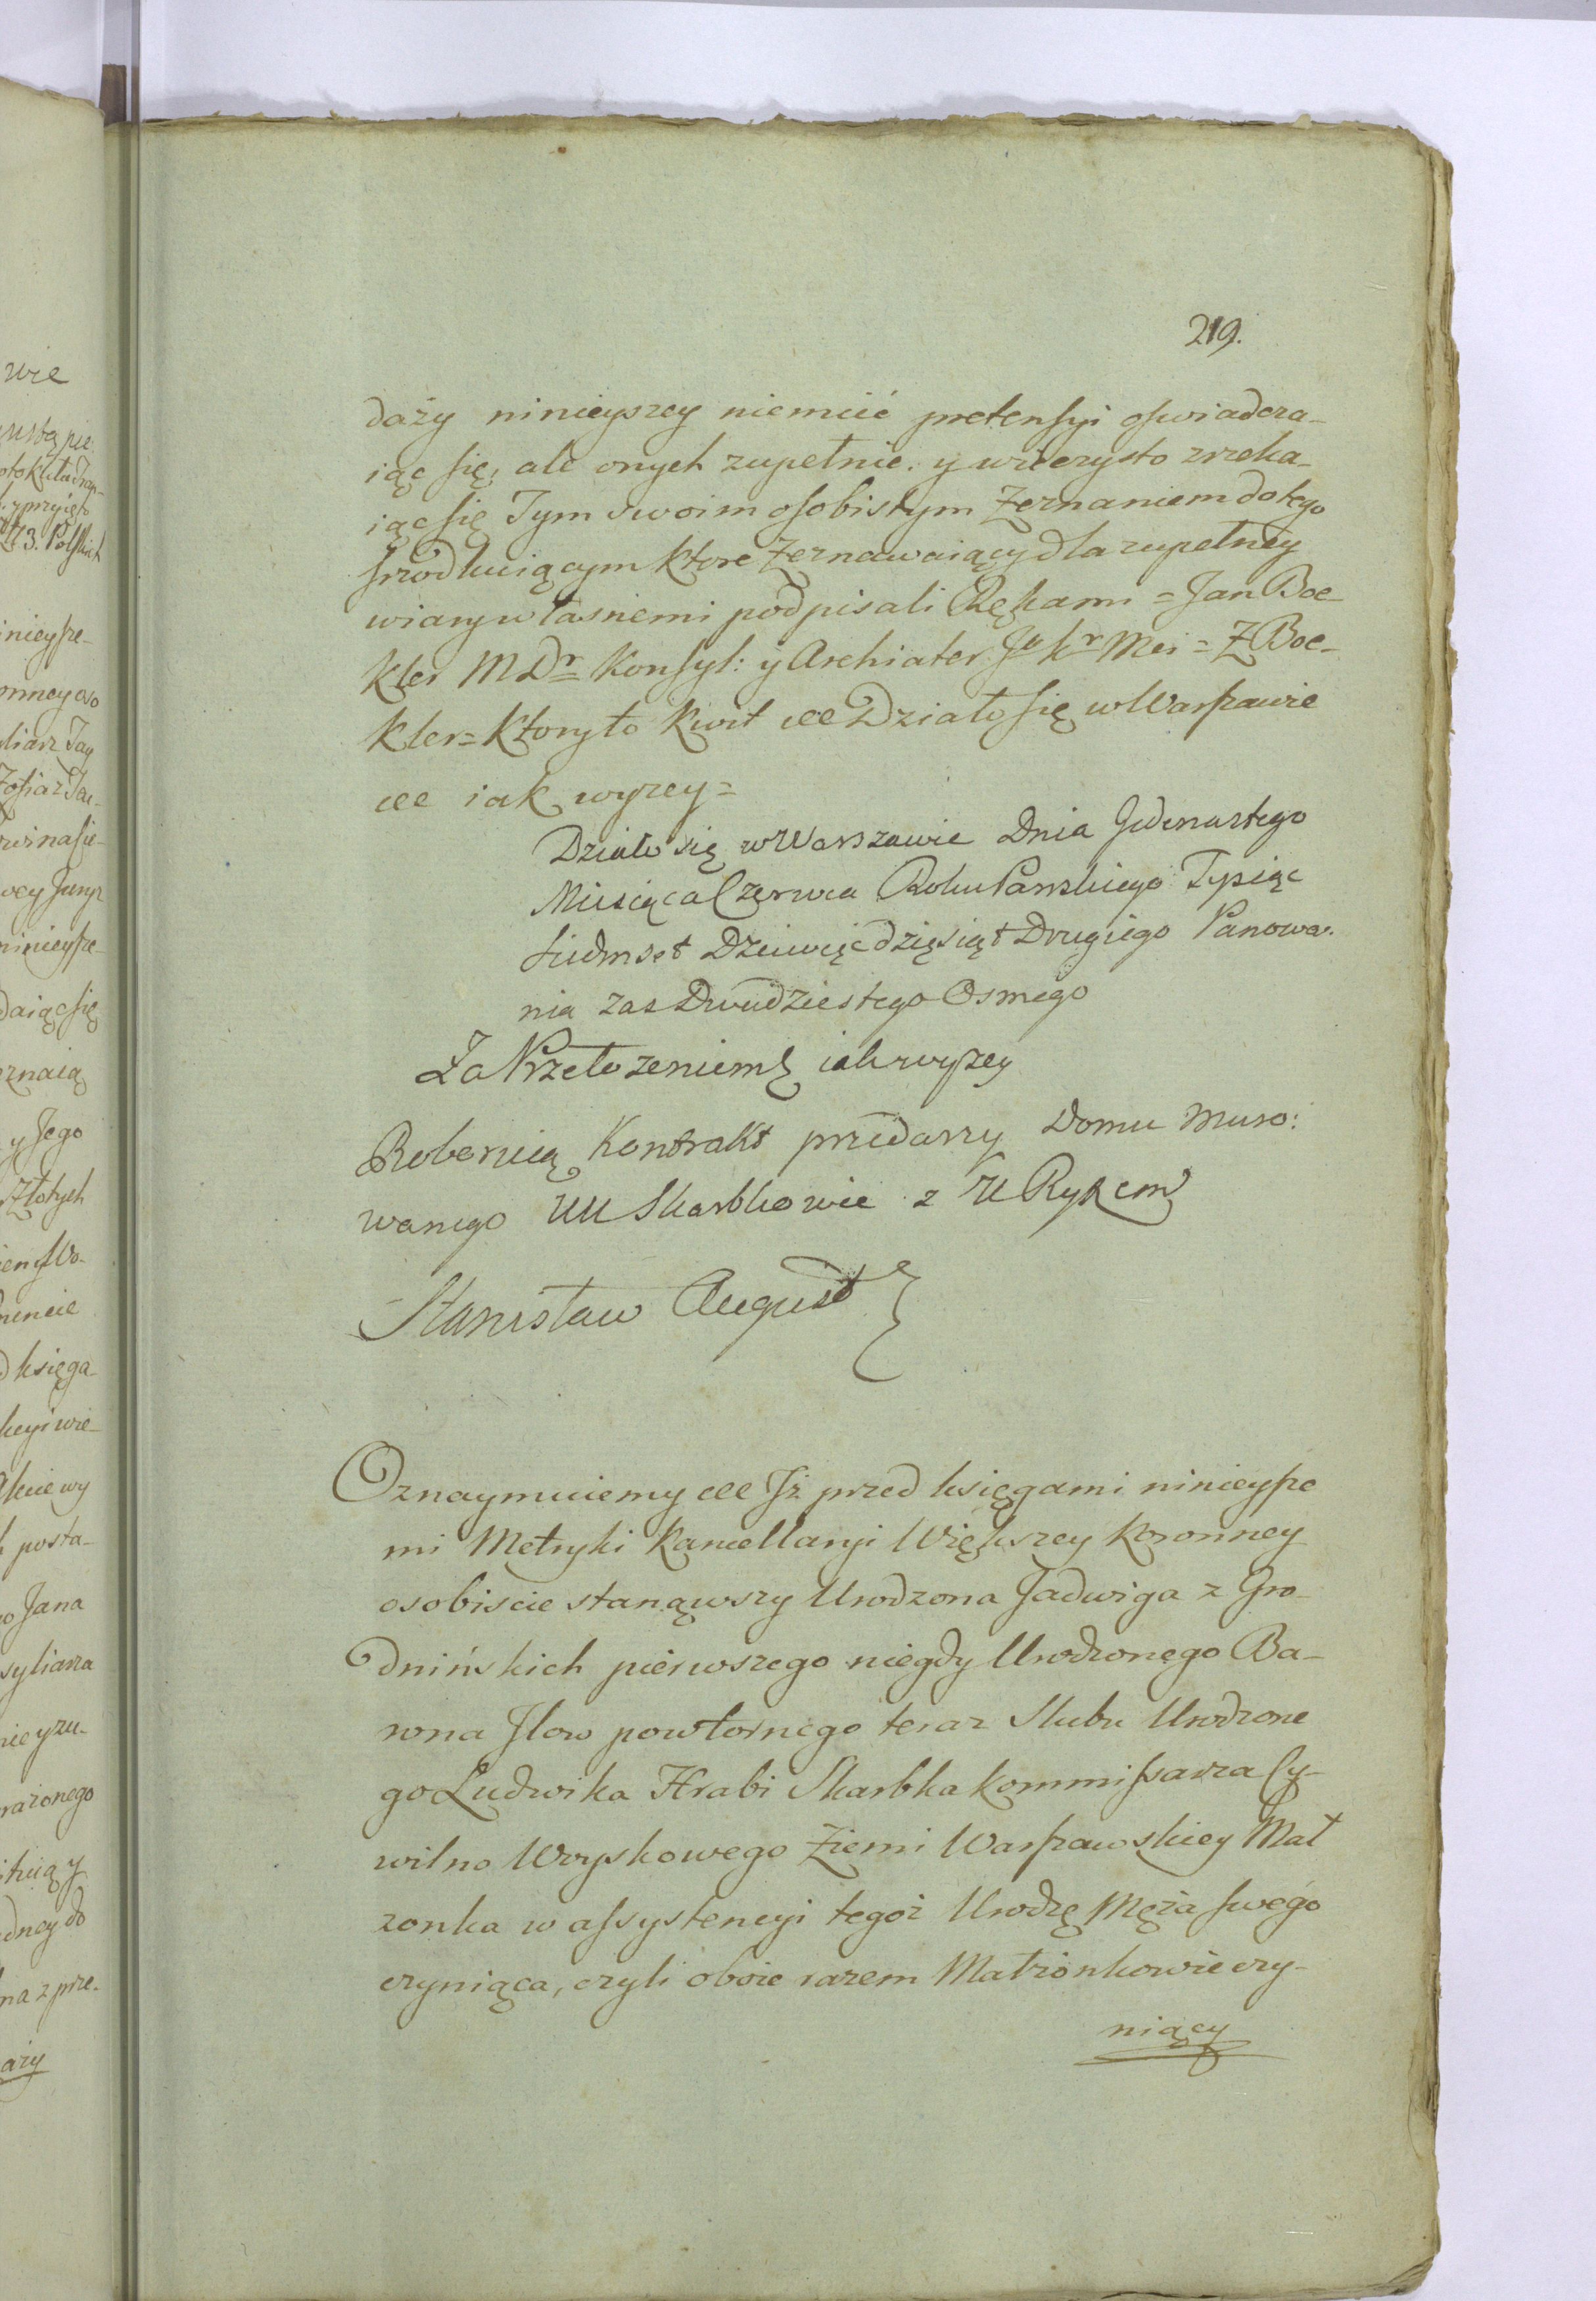 219.
daży ninieyszey niemieć pretensyi oswiadcza-
iąc się, ale onych zupełnie y wieczysto zrzeka-
iąc się Tym swoim osobistym Zeznaniem do tego
srzodkuiącym ktore Zeznawaiący dla zupełney
wiary własnemi podpisali Rękami = Jan Boe-
kler M Dr Konsyl: y Archiater Ja kr Mci = Z Boe-
kler = Ktoryto kwit &c Działo się w Warszawie
&c iak wyzey =
Działo się w Warszawie Dnia Jedenastego
Miesiąca Czerwca Roku Panskiego Tysiąc
Siedmset Dziewięcdziesiąt Drugiego Panowa-
nia zas Dwudziestego Osmego
Za Przełozeniem iak wyzey
Roboruią Kontrakt przedazy Domu Muro:
wanego UU Skarbkowie z U Ryxem
Stanisław August
Oznaymuiemy &c Jż przed księgami ninieysze
mi Metryki Kancellaryi Większey Koronney
osobiscie stanąwszy Urodzona Jadwiga z Gro-
dnińskich pierwszego niegdy Urodzonego Ba-
rona Jlow powtornego teraz Slubu Urodzone
go Ludwika Hrabi Skarbka Kommissarza Cy-
wilno Woyskowego Ziemi Warszawskiey Mał
zonka w assystencyi tegoż Urodzo Męża swego
czyniąca, czyli oboie razem Małżonkowie czy-
niący
wie
3. Polskich
ninieysze-
liarz Jey
ninieysze-
daiąc się
zeznaią
y Jego
Złotych
księga-
posta-
Jana
syliarza
nie y zu-
rażonego
na z prze-
aży